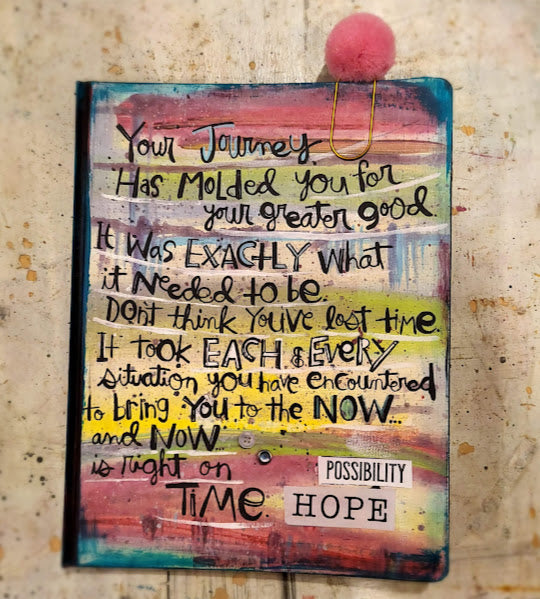 Your Journey
Has Molded you for
your greater good
It Was EXACTLY What
it Needed to be.
DON't think YOU'VE lost time.
It tOOK EACH & EVERY
situation you have encountered
to bring YOU to the NOW...
and NOW...
is right on
TIME.
POSSIBILITY
HOPE